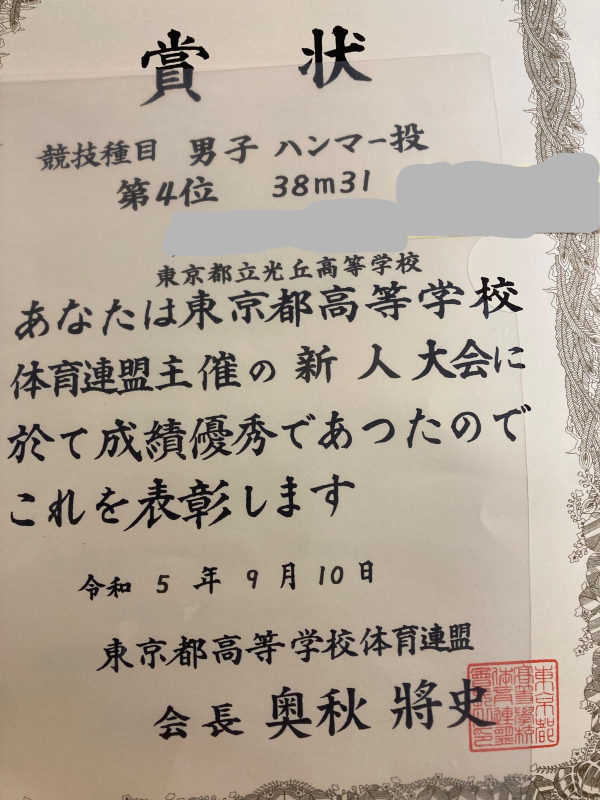 賞 状
競技種目 男子 ハンマー投
第4位 38m31
東京都立光丘高等学校
あなたは東京都高等学校
体育連盟主催の 新 人 大会に
於て成績優秀であつたので
これを表彰します
令和 5 年 9 月 10 日
東京都高等学校体育連盟
会長 奥秋 將史